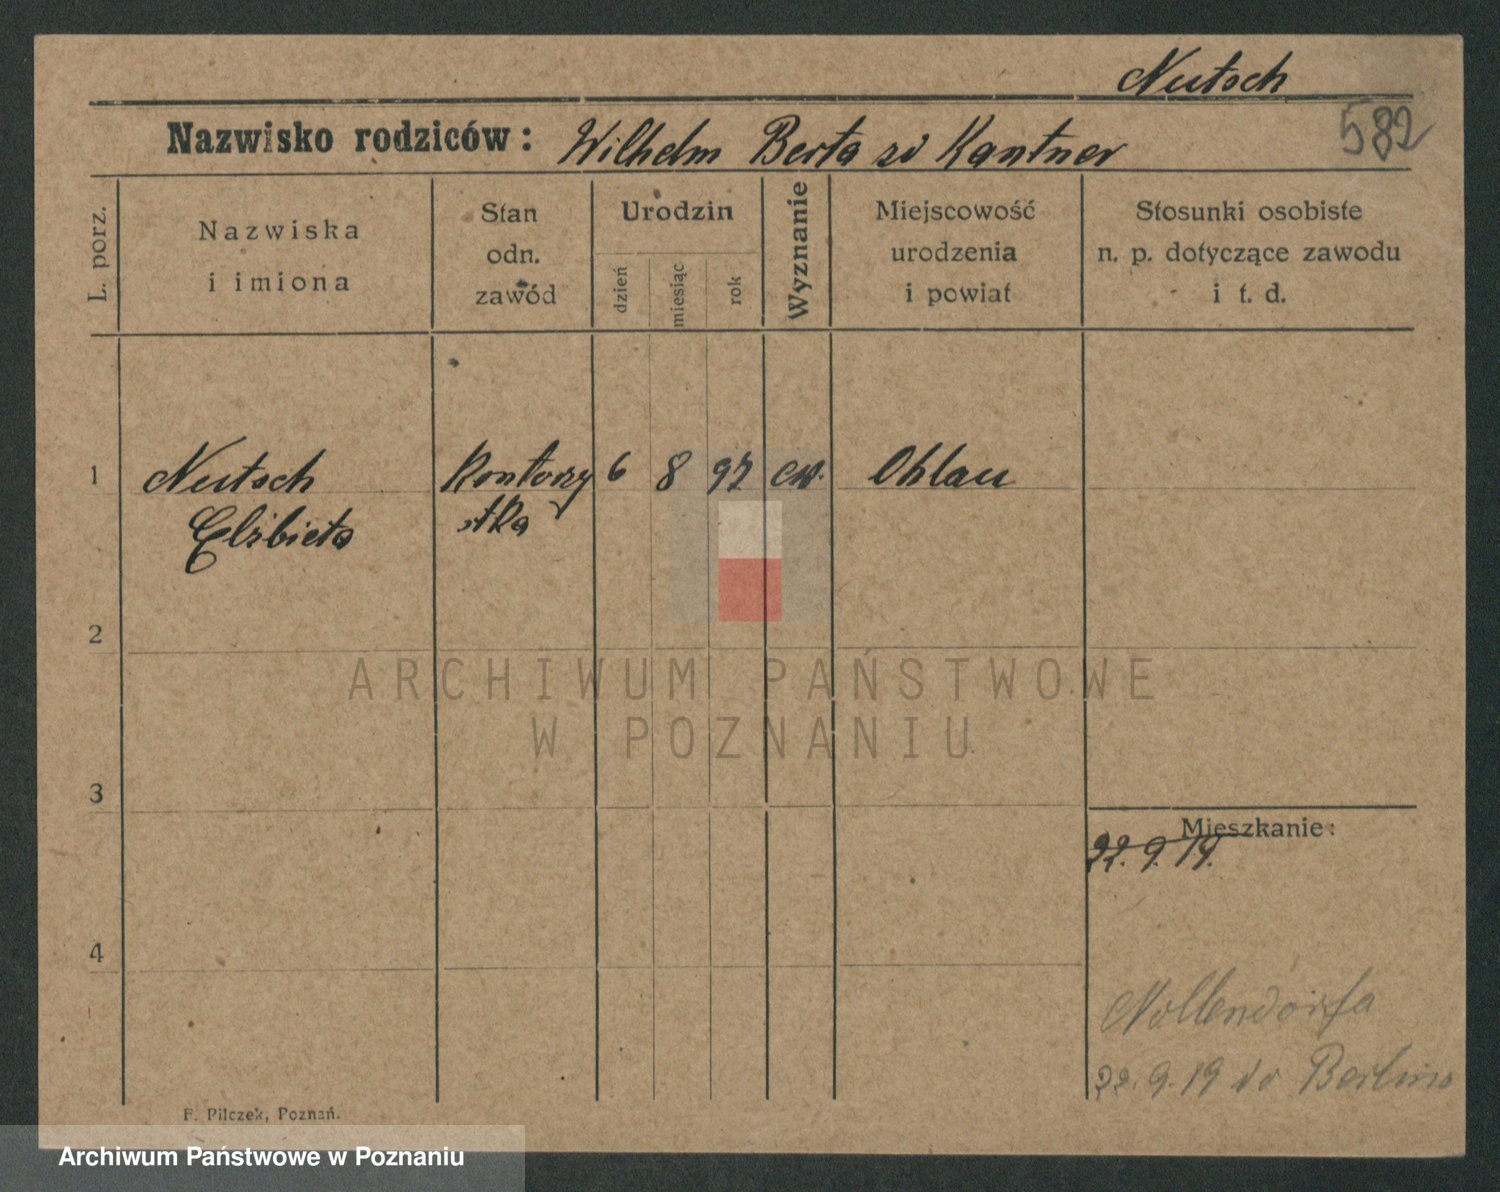 Nutsch
582
Nazwisko rodziców: Wilhelm Berta zd Kantner
L. porz.
Nazwiska
i imiona
Stan
odn.
zawód
Urodzin
dzień
miesiąc
rok
Wyznanie
Miejscowość
urodzenia
i powiat
Stosunki osobiste
n. p. dotyczące zawodu
i t. d.
1 Nutsch 6 8 97 ew. Ohlau
Elżbieta
2
ARCHIWUM PAŃSTWOWE
W POZNANIU
3
Mieszkanie:
22.9.19.
4
Nollendorfa
22.9.19 do Berlina
F. Pilczek, Poznań.
Archiwum Państwowe w Poznaniu